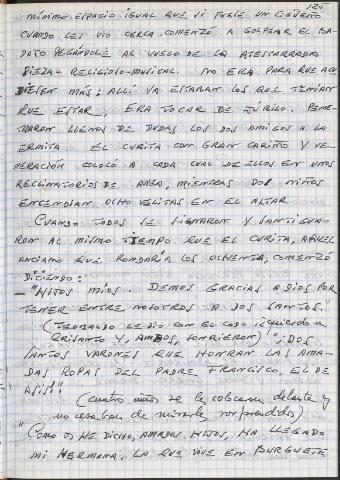 125
MÍNIMO ESPACIO IGUAL QUE SI FUESE UN CIGÜEÑO
CUANDO LES VIO CERCA COMENZÓ A GOLPEAR EL BA-
DAJO PEGÁNDOLE AL VUELO DE LA ATESTARRADA
PIEZA RELIGIOSO-MUSICAL. NO ERA PARA QUE ACU
DIESEN MÁS: ALLÍ YA ESTABAN LOS QUE TENÍAN
QUE ESTAR, ERA TOCAR DE JÚBILO. PENE-
TRARON LLENOS DE DUDAS LOS DOS AMIGOS A LA
ERMITA. EL CURITA CON GRAN CARIÑO Y VE-
NERACIÓN COLOCÓ A CADA CUAL DE ELLOS EN UNOS
RECLINATORIOS DE ANEA, MIENTRAS DOS NIÑOS
ENCENDIAN OCHO VELITAS EN EL ALTAR.
CUANDO TODOS SE SIGNARON Y SANTIGUA-
RON AL MISMO TIEMPO QUE EL CURITA, AQUEL
ANCIANO QUE RONDARÍA LOS OCHENTA, COMENZÓ
DICIENDO:
— "HIJOS MÍOS. DEMOS GRACIAS A DIOS POR
TENER ENTRE NOSOTROS A DOS SANTOS."
(TEOBALDO LE DIO CON EL CODO izquierdo a
CRISANTO Y, AMBOS, SONRIERON) "¡DOS
SANTOS VARONES QUE HONRAN LAS AMA-
DAS ROPAS DEL PADRE FRANCISCO, EL DE
ASÍS!"
(cuatro niños se le colocan delante y
no cesaban de mirarles sorprendidos)
"COMO OS HE DICHO, AMADOS HIJOS, HA LLEGADO
MI HERMANA, LA QUE VIVE EN BURGUETE